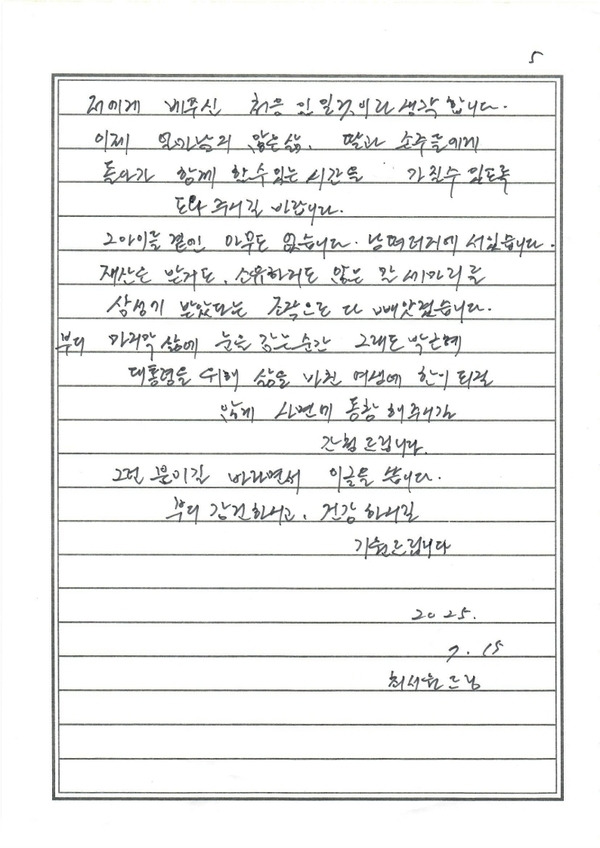 5
저에게 베푸신 처음 인 일것이라 생각 합니다.
이제 얼마남지 않은삶, 딸과 손주들에게
돌아가 함께 할수있는 시간을 가질수 있도록
도와 주시길 바랍니다.
그아이들 곁엔 아무도 없습니다. 낭떠러지에 서있습니다.
재산은 받지도, 소유하지도 않은 말 세마리를
삼성이 받았다는 조작으로 다 빼앗겼습니다.
부디 마지막 삶에 눈을 감는순간 그래도 박근혜
대통령을 위해 삶을 바친 여생에 한이 되질
않게 사면이 통찰 해주시길
간청드립니다.
그런 분이길 바라면서 이글을 씁니다.
부디 강건하시고, 건강 하시길
기원드립니다
2025.
7. 15
최서원 드림